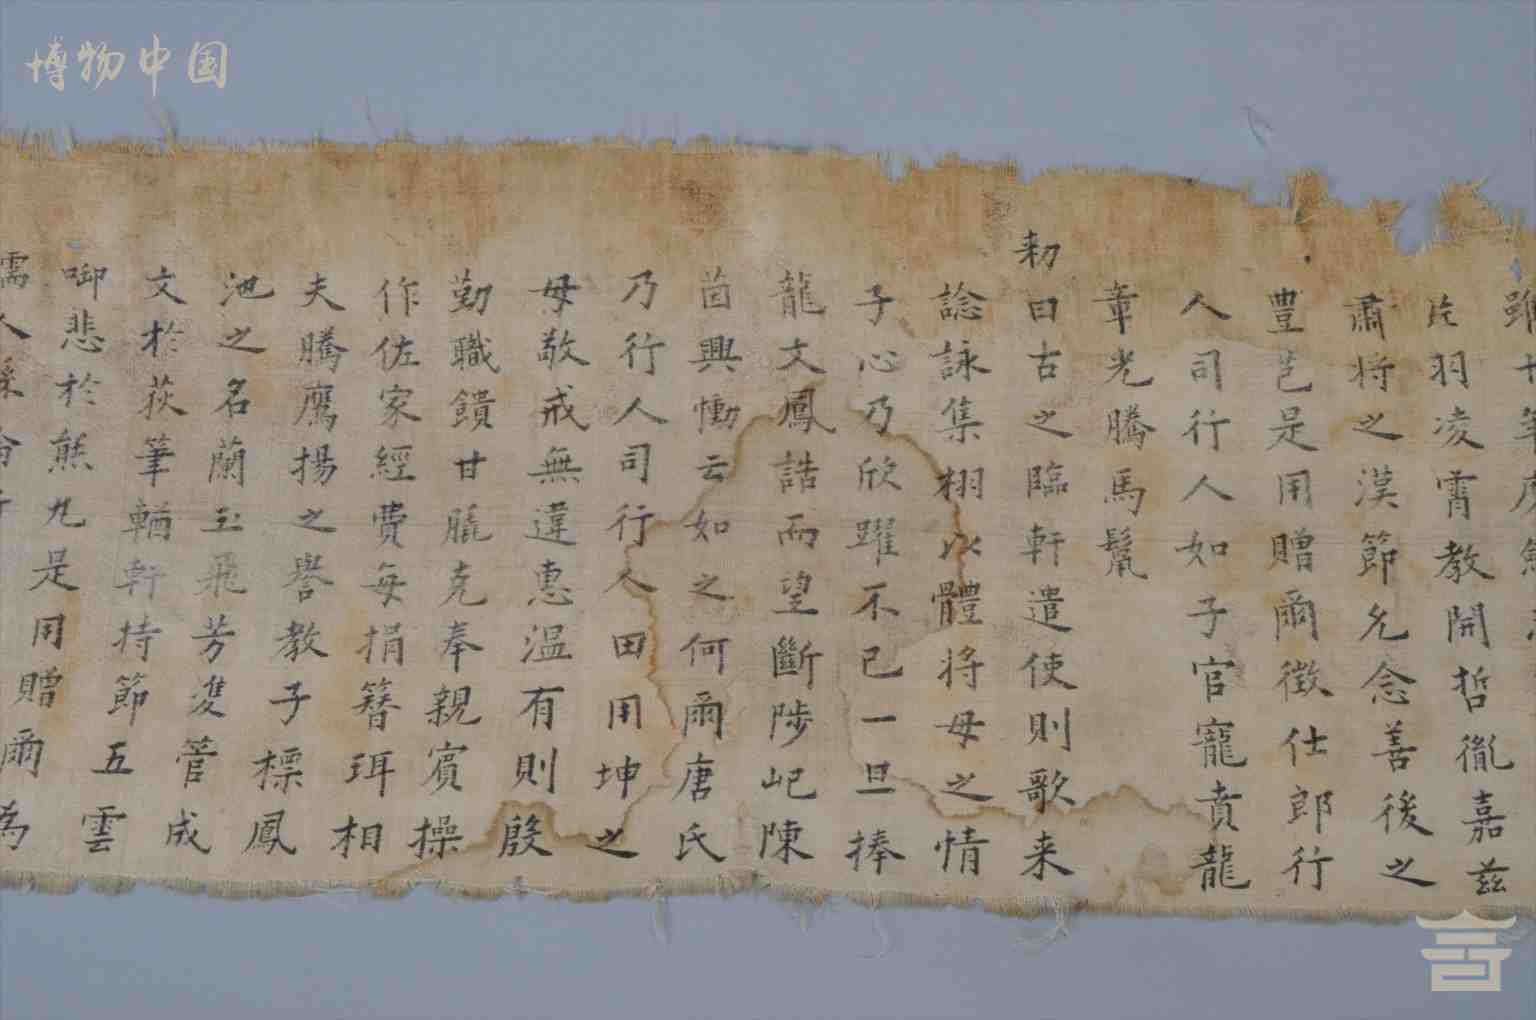 博物中国
羽凌霄教開哲胤嘉兹
肅將之漢節允念善後之
豊芑是用贈爾徵仕郎行
人司行人如子官寵賁龍
章光騰馬鬣
勑
曰古之臨軒遣使則歌来
諗詠集栩以體將母之情
子心乃欣躍不已一旦捧
龍文鳳誥而望斷陟屺陳
茵興慟云如之何爾唐氏
乃行人司行人田用坤之
母敬戒無違惠温有則殷
勤職饋甘膬克奉親賓操
作佐家經費每捐簪珥相
夫騰鷹揚之譽教子標鳳
池之名蘭玉飛芳洊管成
文於荻筆輶軒持節五雲
啣悲於熊丸是用贈爾為